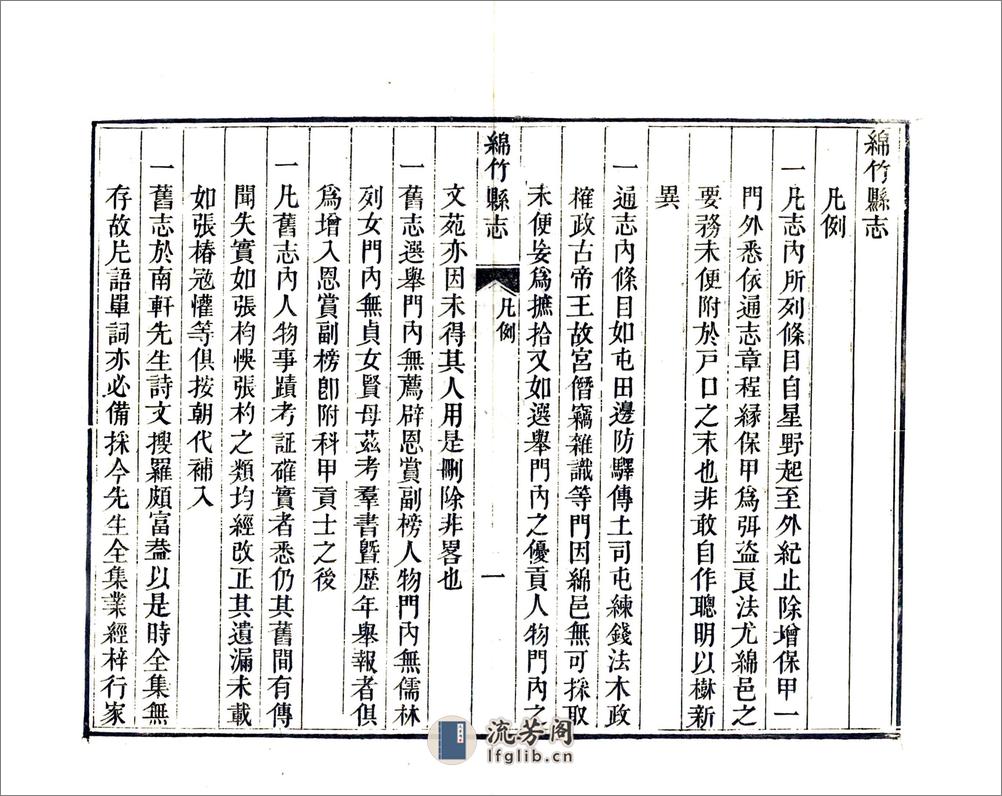 綿竹縣志
凡例
一凡志內所列條目自星野起至外紀止除增保甲一
門外悉依通志章程緣保甲爲弭盜良法尤綿邑之
要務未便附於戸口之末也非敢自作聰明以樹新
異
一通志內條目如屯田邊防驛傳土司屯練錢法木政
榷政古帝王故宮僭竊雜識等門因綿邑無可採取
未便妄爲摭拾又如選舉門內之優貢人物門內之
綿竹縣志
凡例
一
文苑亦因未得其人用是刪除非畧也
一舊志選舉門內無薦辟恩賞副榜人物門內無儒林
列女門內無貞女賢母茲考羣書暨歷年舉報者俱
爲增入恩賞副榜卽附科甲貢士之後
一凡舊志內人物事蹟考証確實者悉仍其舊間有傳
聞失實如張枃悞張杓之類均經改正其遺漏未載
如張椿冦懽等俱按朝代補入
一舊志於南軒先生詩文搜羅頗富葢以是時全集無
存故片語單詞亦必備採今先生全集業經梓行家
流芳阁
lfglib.cn